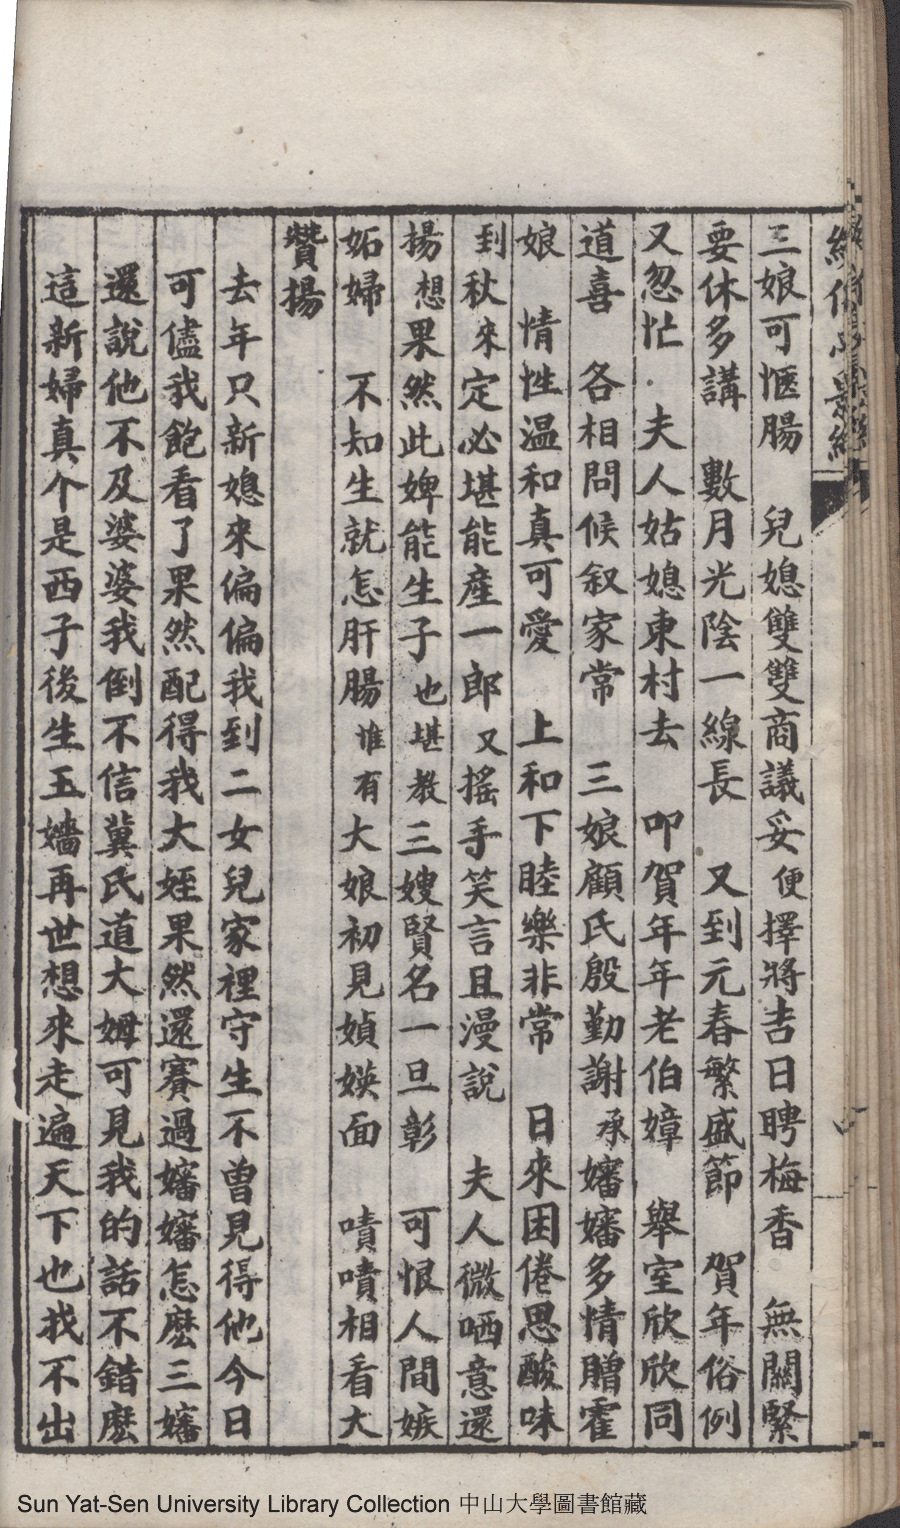 三娘可愜腸　兒媳雙雙商議妥便擇將吉日聘梅香　無關緊
要休多講　數月光陰一線長　又到元春繁盛節　賀年俗例
又忽忙　夫人姑媳東村去　叩賀年年老伯嫜　舉室欣欣同
道喜　各相問候叙家常　三娘顧氏殷勤謝承嬸嬸多情贈霍
娘　情性温和真可愛　上和下睦樂非常　日來困倦思酸味
到秋來定必堪能産一郎又搖手笑言且漫說　夫人微哂意還
揚想果然此婢能生子也堪教三嫂賢名一旦彰　可恨人間嫉
妬婦　不知生就怎肝腸惟有大娘初見媜媖面　嘖嘖相看大
贊揚
去年只新媳來偏偏我到二女兒家裡守生不曾見得他今日
可儘我飽看了果然配得我大姪果然還賽過嬸嬸怎麽三嬸
還說他不及婆婆我倒不信冀氏道大姆可見我的話不錯麽
這新婦真个是西子後生玉嬙再世想來走遍天下也找不出
Sun Yat-Sen University Library Collection 中山大學圖書館藏